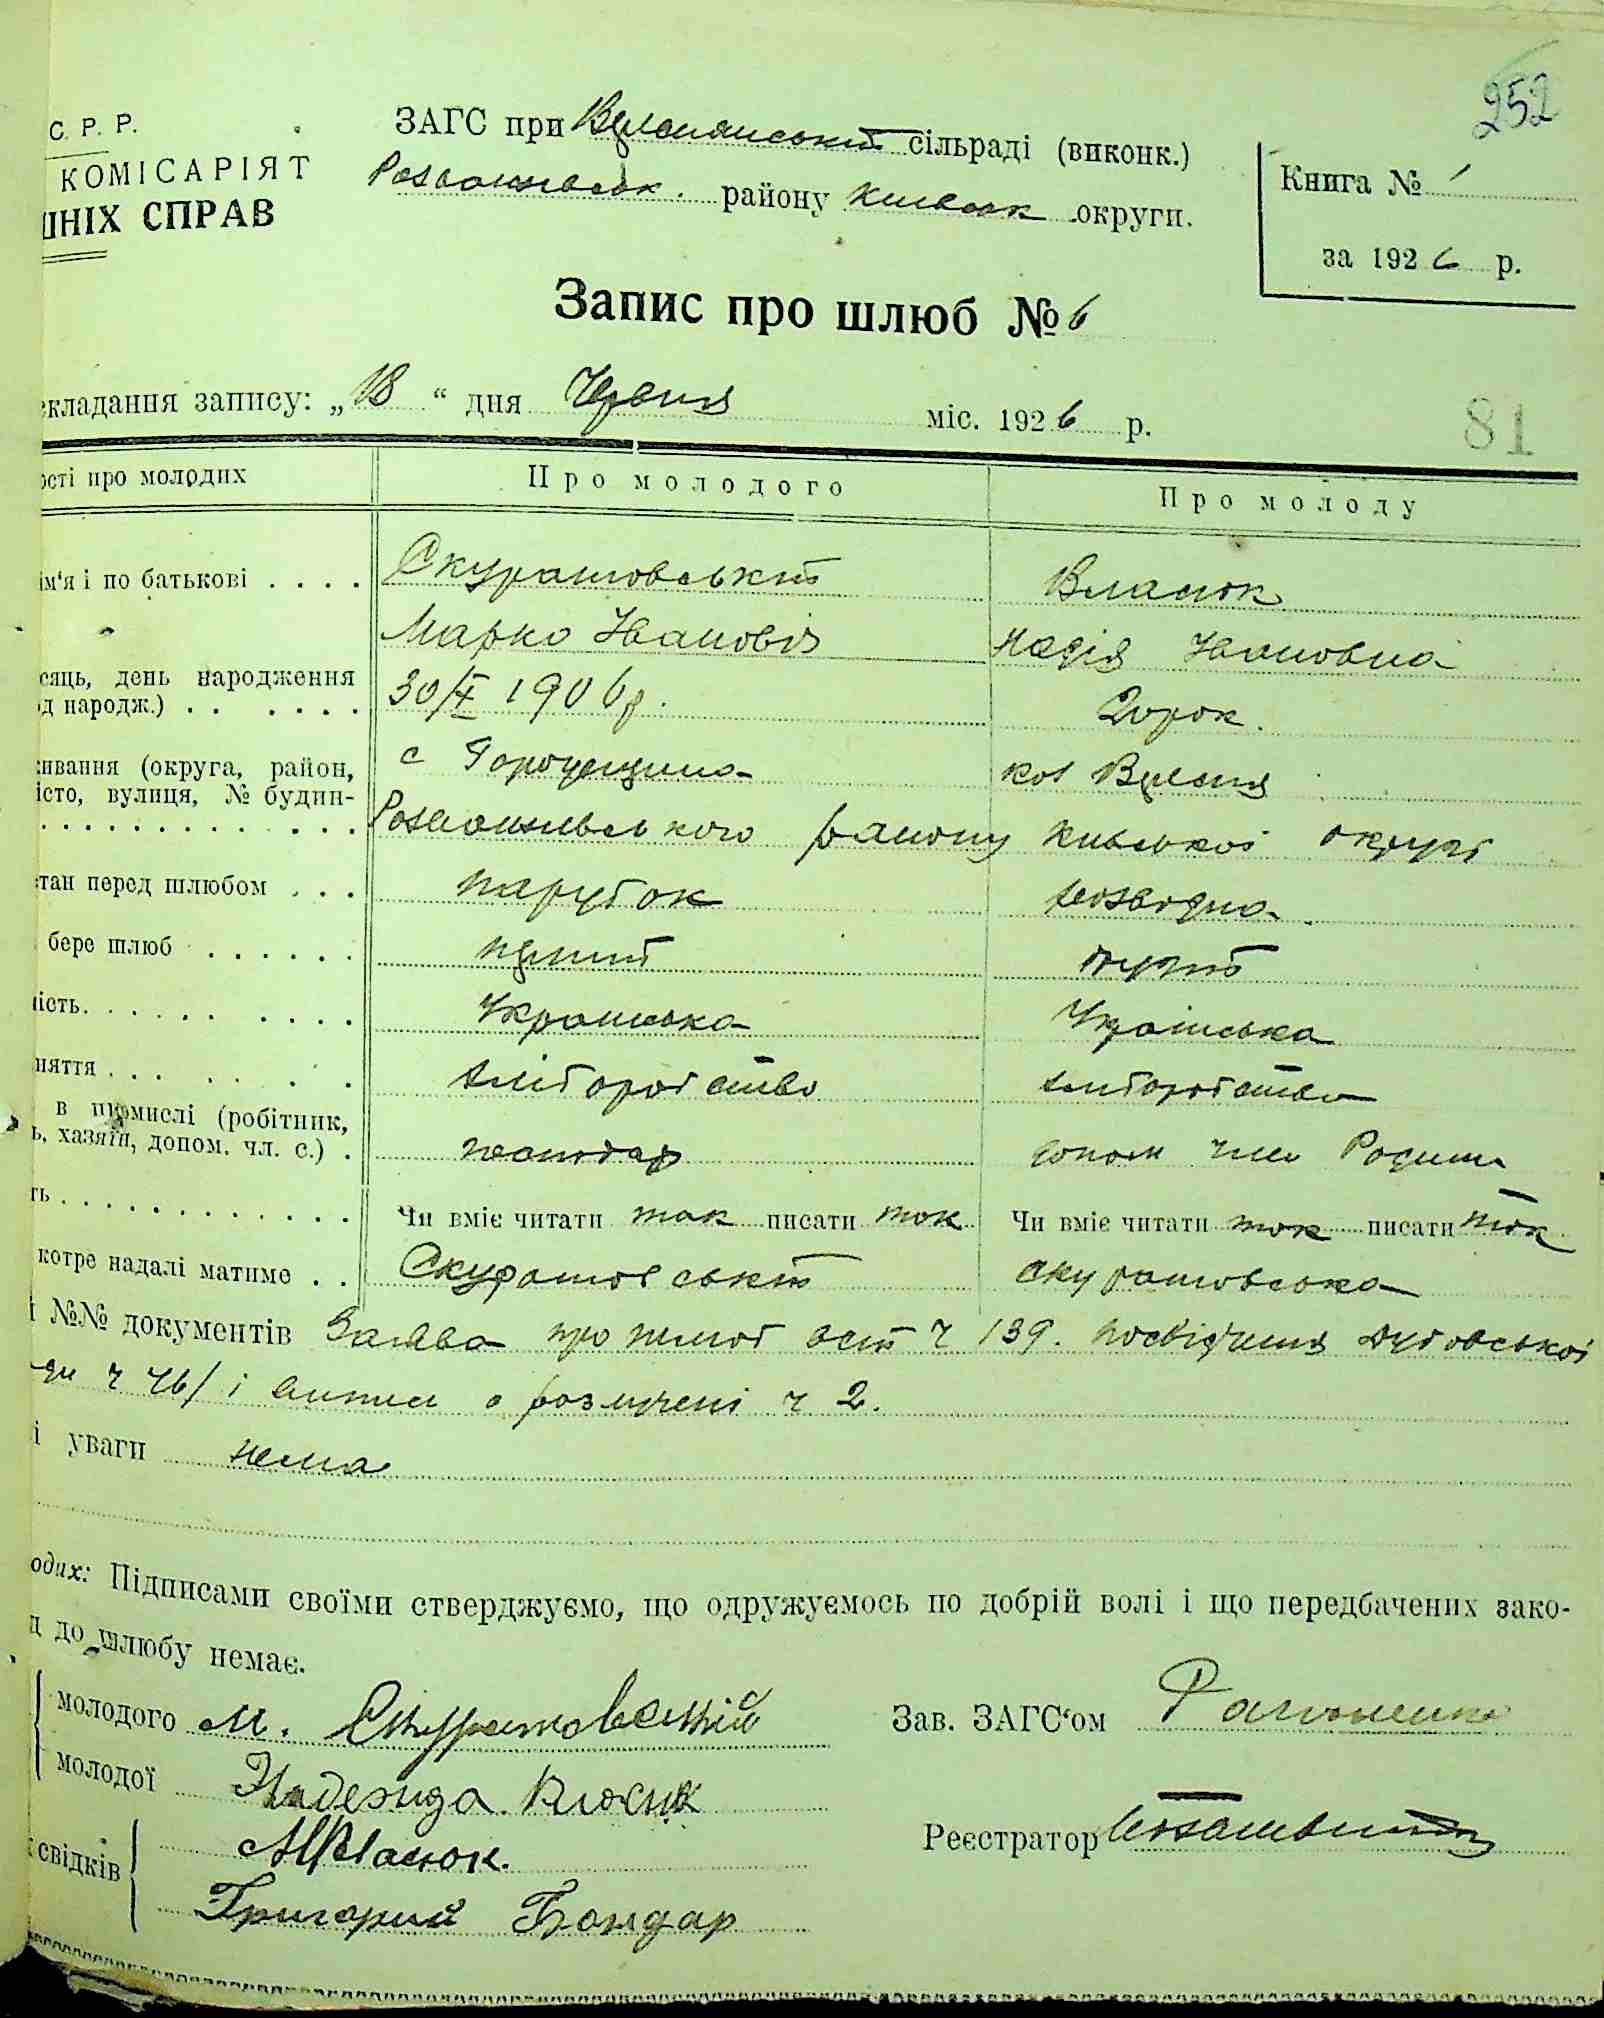 252
С. Р. Р.
КОМІСАРІЯТ
ШНІХ СПРАВ
ЗАГС при сільраді (виконк.)
району Київськ округи.
Книга № 1
за 1926 р.
Запис про шлюб № 6
складання запису: „18“ дня Червня міс. 1926 р.
81
ості про молодих Про молодого Про молоду
ім'я і по батькові . . . . Скуратовський Власюк
Марко Івановіч Надія Івановна
сяць, день народження 30/X 1906 р. 20 рок.
д народж.) . . . . . .
ивання (округа, район, с Городещина кол Вересня
істо, вулиця, № будин-
Розважівського району Київської округи
тан перед шлюбом . . . паруток розвідна
бере шлюб . . . . . . перший другий
ість. . . . . . . . . . Українська Українська
няття . . . . . . . хліборобство хліборобство
в промислі (робітник,
ь, хазяїн, допом. чл. с.) . господар допом член Родини
ть . . . . . . . . . . . . . Чи вміє читати так писати так Чи вміє читати так писати так
котре надалі матиме . . Скуратовський Скуратовська
і №№ документів Заява про шлюб ч 139. посвідчення
ч 461 і випис о розлучені ч 2.
і уваги нема
одих: Підписами своїми стверджуємо, що одружуємось по добрій волі і що передбачених зако-
д до шлюбу немає.
молодого М. Скуратовский Зав. ЗАГС'ом
молодої Надежда Власюк
свідків МВласюк. Реєстратор
Григорий Бондар